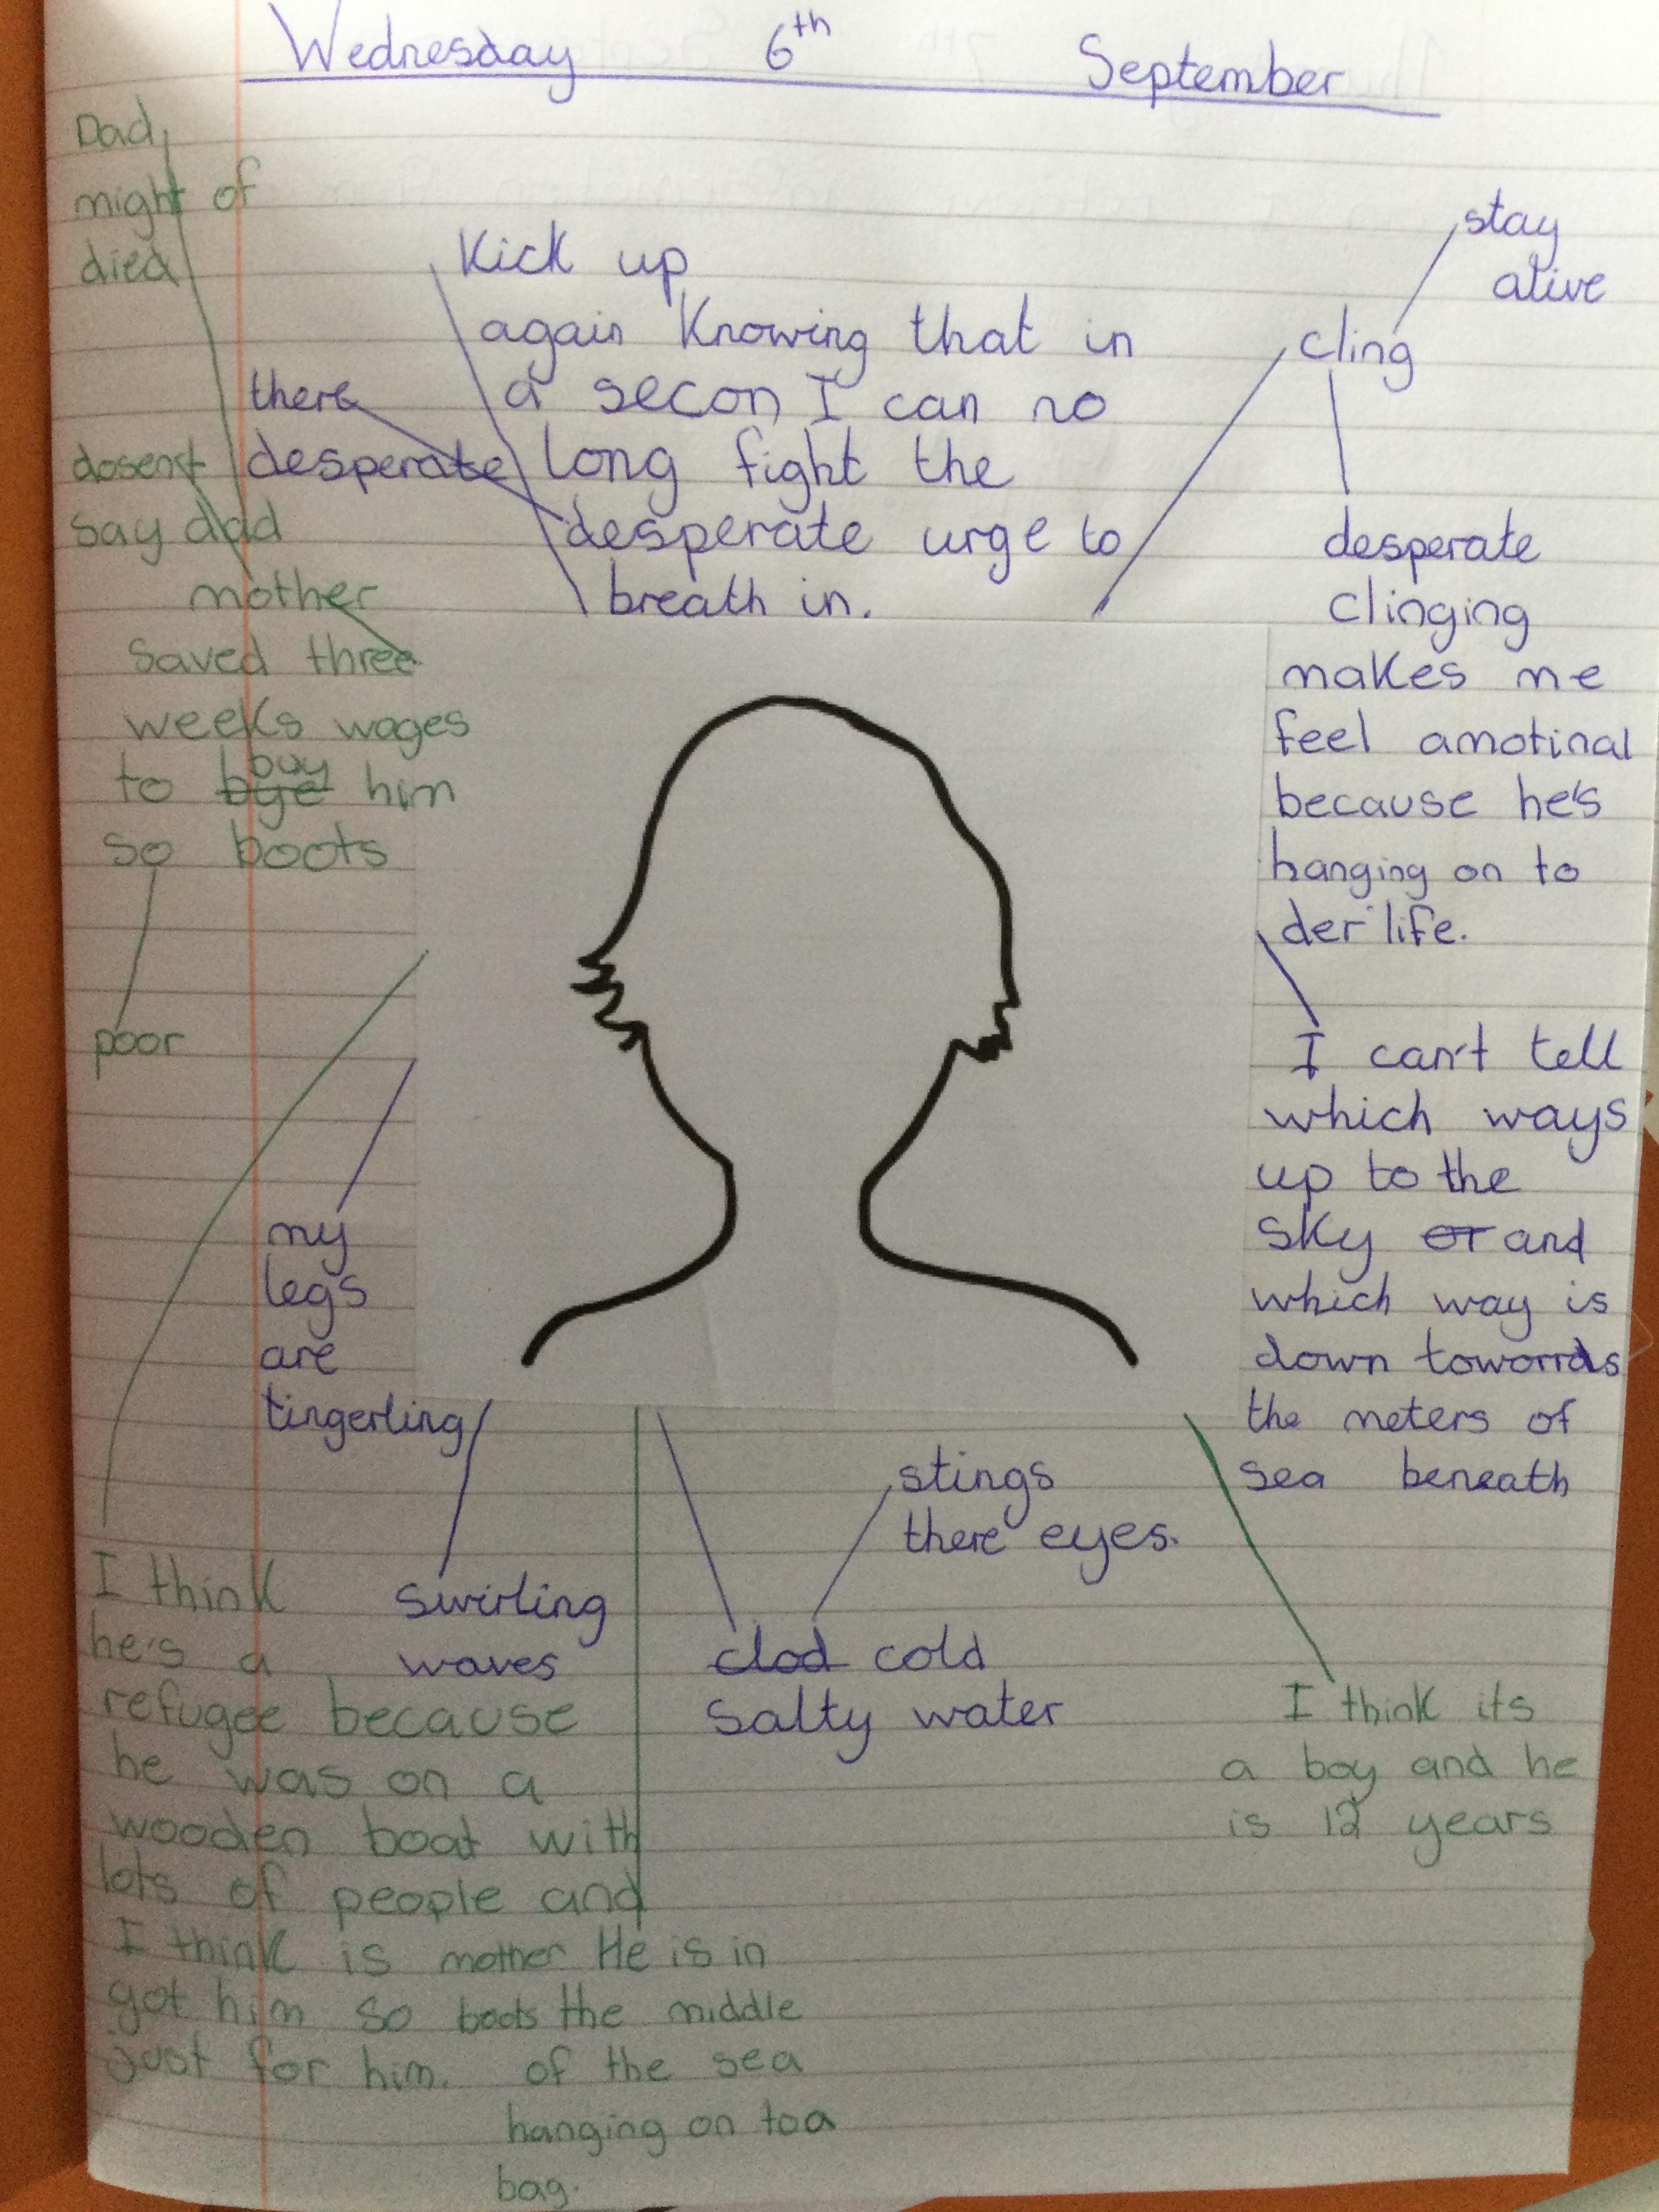 Wednesday 6th September
Dad
might of
died
dosent
say dad
mother
saved three
weeks wages
to bye buy him
so boots
poor
Kick up
again Knowing that in
a secon I can no
long fight the
desperate urge to
breath in.
there
desperate
stay
alive
cling
desperate
clinging
makes me
feel amotinal
because he's
hanging on to
der life.
I can't tell
which ways
up to the
sky or and
which way is
down towards
the meters of
sea beneath
my
legs
are
tingerling
swirling
waves
stings
there eyes.
clod cold
salty water
I think its
a boy and he
is 12 years
I think
he's a
refugee because
he was on a
wooden boat with
lots of people and
I think is mother
got him so boots
just for him.
He is in
the middle
of the sea
hanging on to a
bag.